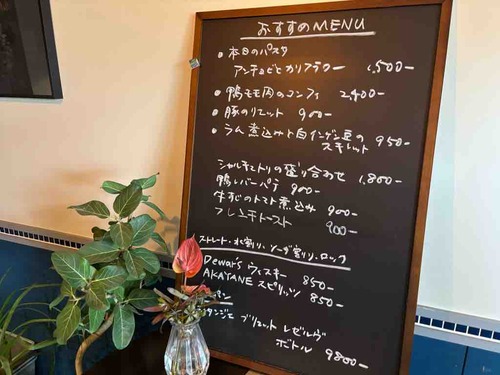 おすすめMENU
・本日のパスタ
アンチョビとカリフラワー 1,500-
・鴨モモ肉のコンフィ 2,400-
・豚のリエット 900-
・ラム煮込みと白インゲン豆の 950-
スキレット
シャルキュトリの盛り合わせ 1,800-
鴨レバーパテ 900-
牛すじのトマト煮込み 900-
フレンチトースト 900-
ストレート・水割り・ソーダ割り・ロック
Dewar's ウィスキー 850-
AKAYANE スピリッツ 850-
ブリュット レゼルヴ
ボトル 9800-